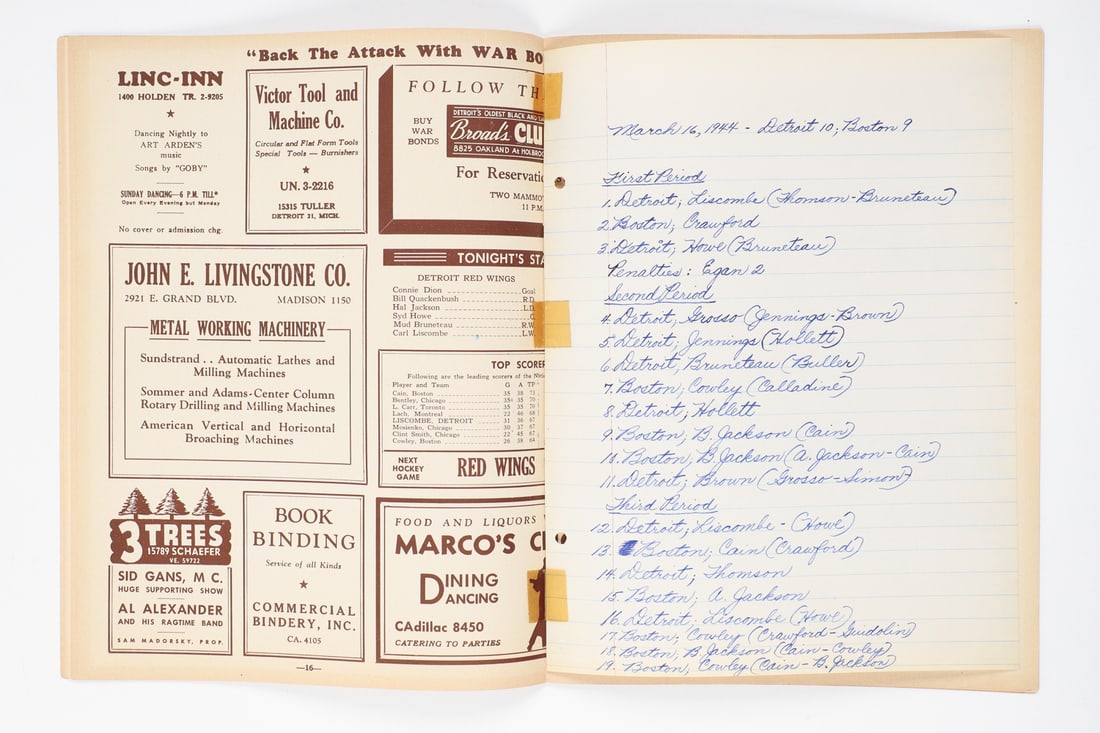 "Back The Attack With WAR BO
LINC-INN
1400 HOLDEN TR. 2-9205
Dancing Nightly to
ART ARDEN'S
music
Songs by "GOBY"
SUNDAY DANCING—6 P.M. TILL*
Open Every Evening but Monday
No cover or admission chg.
Victor Tool and
Machine Co.
Circular and Flat Form Tools
Special Tools — Burnishers
UN. 3-2216
15315 TULLER
DETROIT 21, MICH.
FOLLOW TH
BUY
WAR
BONDS
DETROIT'S OLDEST BLACK AND
Broad's CLU
8825 OAKLAND At HOLBROO
For Reservati
TWO MAMMO
11 P.M.
JOHN E. LIVINGSTONE CO.
2921 E. GRAND BLVD. MADISON 1150
METAL WORKING MACHINERY
Sundstrand . . Automatic Lathes and
Milling Machines
Sommer and Adams-Center Column
Rotary Drilling and Milling Machines
American Vertical and Horizontal
Broaching Machines
TONIGHT'S STA
DETROIT RED WINGS
Connie Dion Goal
Bill Quackenbush R.D.
Hal Jackson L.D.
Syd Howe C.
Mud Bruneteau R.W.
Carl Liscombe L.W.
TOP SCORER
Following are the leading scorers of the
Player and Team G A TP
Cain, Boston 35 38 73
Bentley, Chicago 35 35 70
L. Carr, Toronto 35 35 70
Lach, Montreal 22 46 68
LISCOMBE, DETROIT 31 36 67
Mosienko, Chicago 30 37 67
Clint Smith, Chicago 22 45 67
Cowley, Boston 26 38 64
NEXT
HOCKEY
GAME
RED WINGS
3 TREES
15789 SCHAEFER
VE. 59722
SID GANS, M C.
HUGE SUPPORTING SHOW
AL ALEXANDER
AND HIS RAGTIME BAND
SAM MADORSKY, PROP.
BOOK
BINDING
Service of all Kinds
COMMERCIAL
BINDERY, INC.
CA. 4105
FOOD AND LIQUORS
MARCO'S C
DINING
DANCING
CAdillac 8450
CATERING TO PARTIES
—16—
March 16, 1944 - Detroit 10; Boston 9
First Period
1. Detroit; Liscombe (Thomson-Bruneteau)
2. Boston; Crawford
3. Detroit; Howe (Bruneteau)
Penalties: Egan 2
Second Period
4. Detroit, Grosso (Jennings-Brown)
5. Detroit; Jennings (Hollett)
6. Detroit, Bruneteau (Buller)
7. Boston; Cowley (Calladine)
8. Detroit; Hollett
9. Boston, B. Jackson (Cain)
10. Boston; B Jackson (A. Jackson-Cain)
11. Detroit; Brown (Grosso-Simon)
Third Period
12. Detroit; Liscombe - (Howe)
13. Boston; Cain (Crawford)
14. Detroit; Thomson
15. Boston; A. Jackson
16. Detroit; Liscombe (Howe)
17. Boston; Cowley (Crawford-Guidolin)
18. Boston; B Jackson (Cain-Cowley)
19. Boston, Cowley (Cain-B. Jackson)